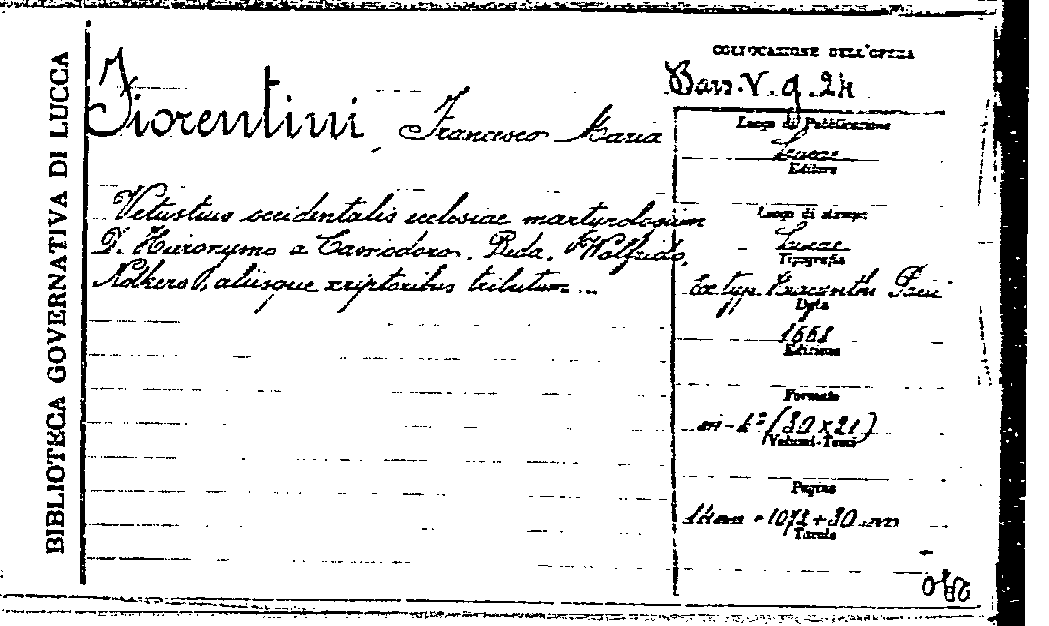 BIBLIOTECA GOVERNATIVA DI LUCCA
Fiorentini, Francesco Maria
Vetustius occidentalis ecclesiae martyrologium
D. Hieronymo a Cassiodoro, Beda, Walfrido,
Notkero, aliisque scriptoribus tributum...
COLLOCAZIONE DELL'OPERA
V. g. 24
Luogo di Pubblicazione
Lucae
Editore
Luogo di stampa
Lucae
Tipografia
Ex typ.
Data
1668
Edizione
Formato
in-4° (30 x 21)
Volumi-Tomi
Pagine
+ 1073 + 30
Tavole